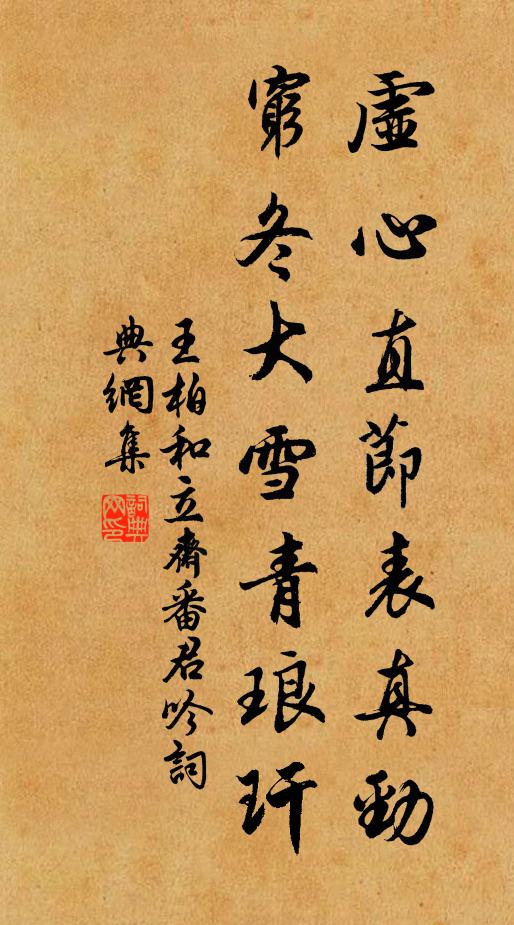 虛心直節表真勁
窮冬大雪青琅玕
王柏和立齋番君吟詞
典網集
詞典
网印